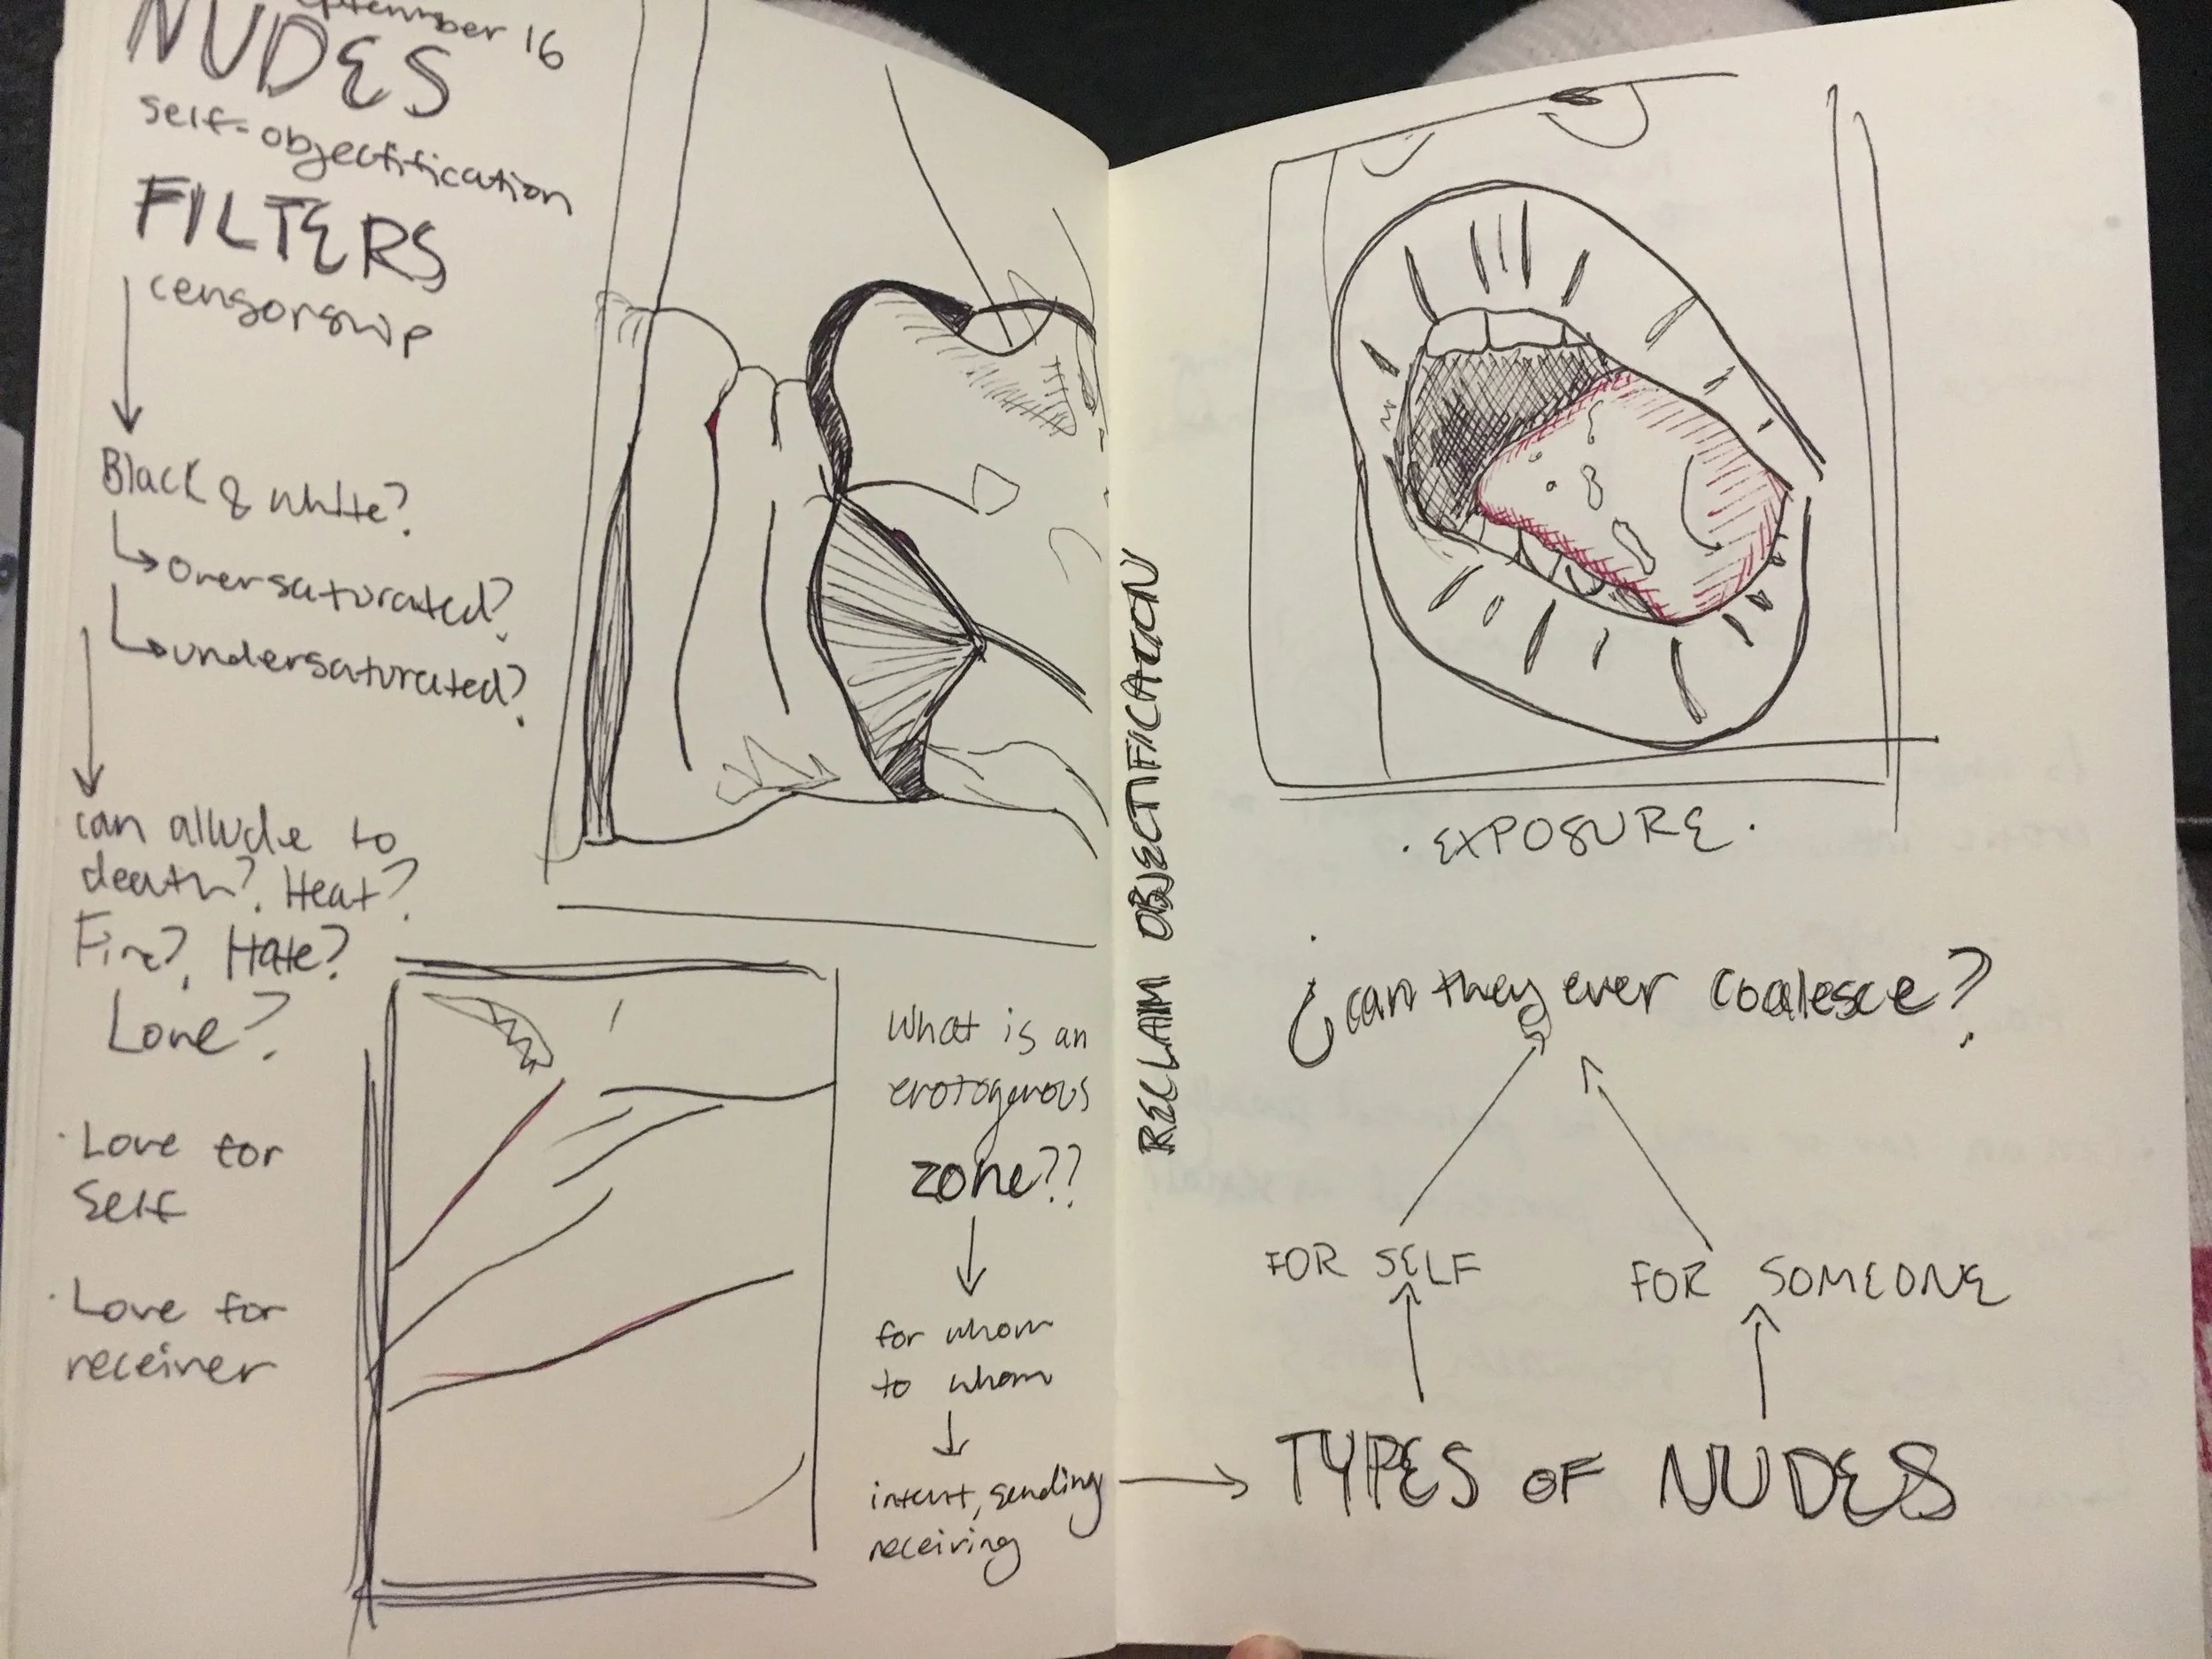 September 16
NUDES
self-objectification
FILTERS
censorship
Black & white?
oversaturated?
undersaturated?
can allude to
death? Heat?
Fire? Hate?
Love?
· Love for
self
· Love for
receiver
What is an
erotogenous
zone??
for whom
to whom
intent, sending
receiving
RECLAIM OBJECTIFICATION
· EXPOSURE ·
¿can they ever coalesce?
FOR SELF
FOR SOMEONE
TYPES OF NUDES